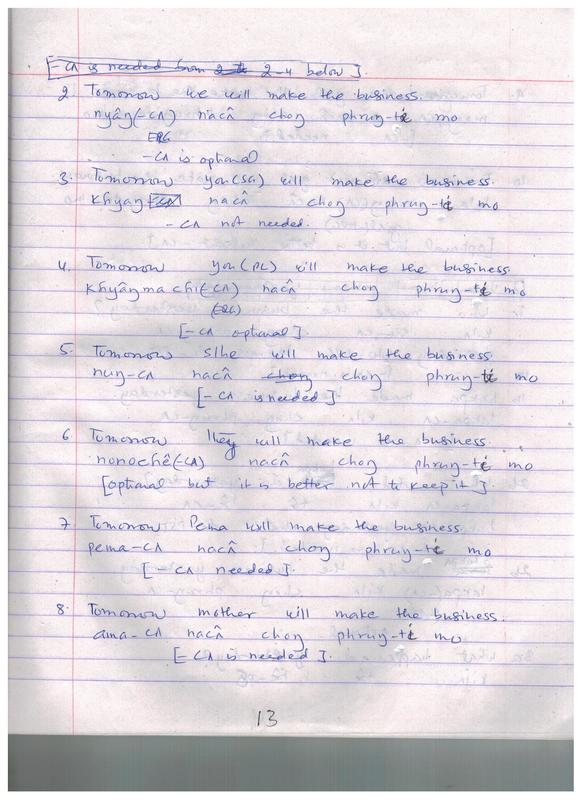 [-cʌ is needed from 2-4 below].
2. Tomorrow we will make the business.
nyâŋ(-cʌ) nacʌ̂ choŋ phruŋ-tɨ́ mo
ERG
-cʌ is optional
3. Tomorrow you(SG) will make the business.
khyaŋ nacʌ̂ choŋ phruŋ-tɨ́ mo
-cʌ not needed.
4. Tomorrow you(PL) will make the business
khyâŋmachi(-cʌ) nacʌ̂ choŋ phruŋ-tɨ́ mo
(ERG)
[-cʌ optional].
5. Tomorrow s/he will make the business.
nuŋ-cʌ nacʌ̂ choŋ choŋ phruŋ-tɨ́ mo
[-cʌ is needed]
6. Tomorrow they will make the business
nonochê(-cʌ) nacʌ̂ choŋ phruŋ-tɨ́ mo
[optional but it is better not to keep it].
7. Tomorrow Pema will make the business
pema-cʌ nacʌ̂ choŋ phruŋ-tɨ́ mo
[-cʌ needed].
8. Tomorrow mother will make the business.
ama-cʌ nacʌ̂ choŋ phruŋ-tɨ́ mo
[-cʌ is needed].
13